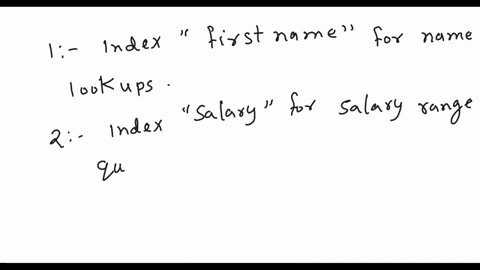 1:- Index "first name" for name
lookups.
2:- Index "Salary" for salary range
qu